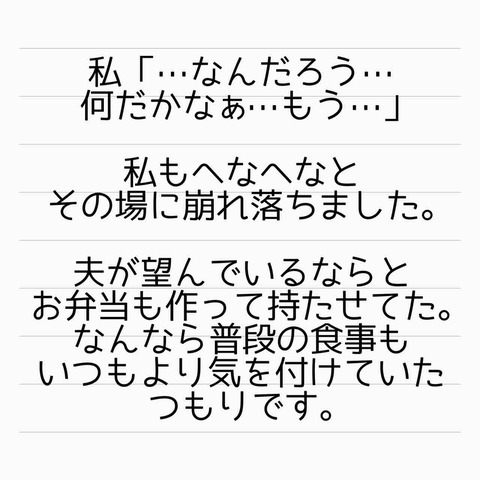 私「…なんだろう…
何だかなぁ…もう…」
私もへなへなと
その場に崩れ落ちました。
夫が望んでいるならと
お弁当も作って持たせてた。
なんなら普段の食事も
いつもより気を付けていた
つもりです。